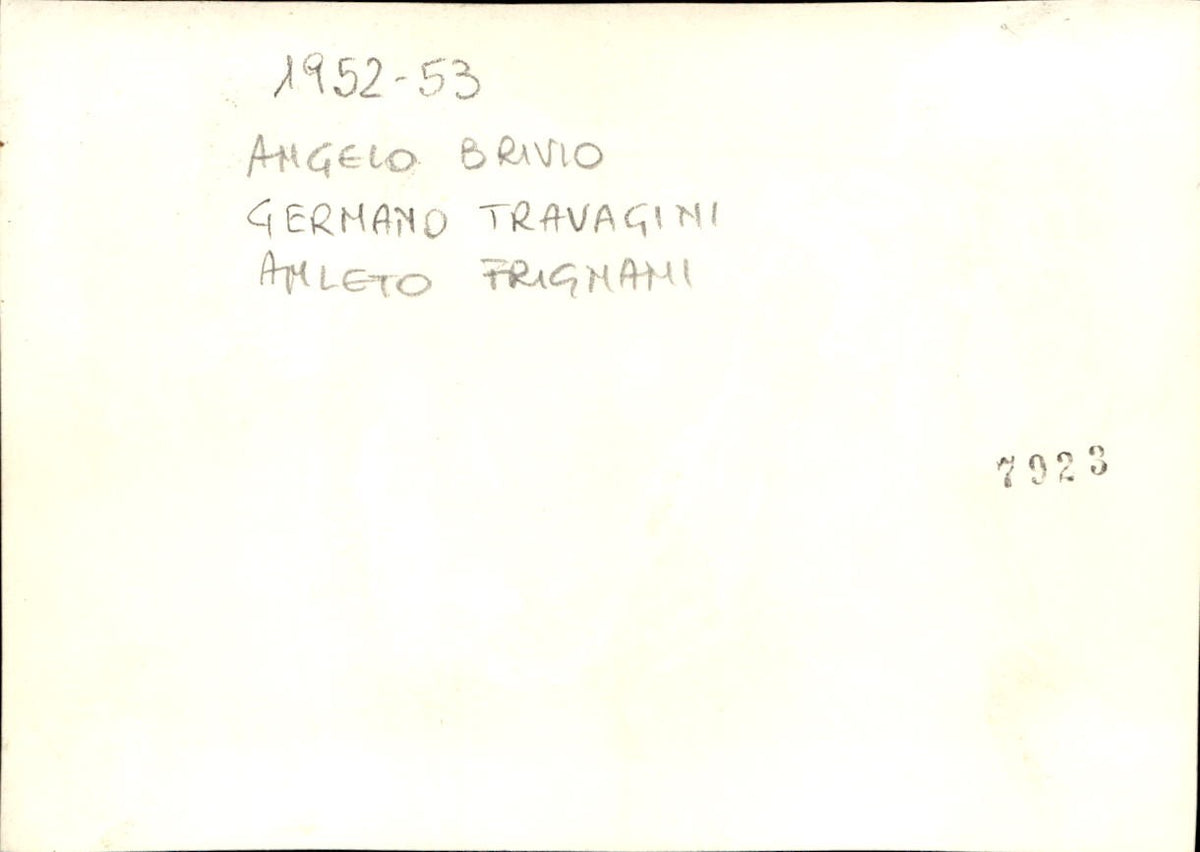 1952-53
ANGELO BRIVIO
GERMANO TRAVAGINI
AMLETO FRIGNANI
7923